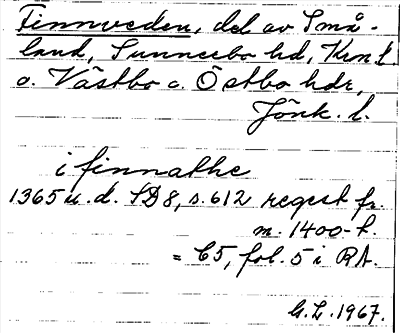 Finnveden, del av Små-
land, Sunnerbo hd, Kron. l.
o. Västbo o. Östbo hdr,
Jönk. l.
i finnathe
1365 u.d. SD 8, s. 612 regest fr.
m. 1400-t.
= C5, fol. 5 i RA.
G.L. 1967.